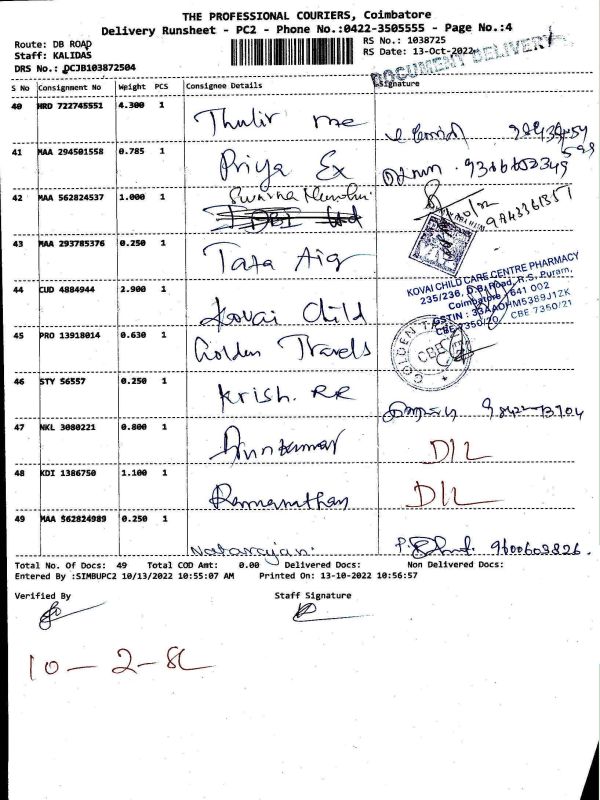 THE PROFESSIONAL COURIERS, Coimbatore
Delivery Runsheet - PC2 - Phone No.:0422-3505555 - Page No.:4
Route: DB ROAD
Staff: KALIDAS
DRS No.: DCJB103872504
RS No.: 1038725
RS Date: 13-Oct-2022
DOCUMENT DELIVERY
S No Consignment No Weight PCS Consignee Details Signature
40 HRD 722745551 4.300 1 Thulir me
41 MAA 294501558 0.785 1 Priya Ex
42 MAA 562824537 1.000 1 IDBI Ltd
43 MAA 293785376 0.250 1 Tata Aig
44 CUD 4884944 2.900 1 Kovai Child
KOVAI CHILD CARE CENTRE PHARMACY
235/236, D.B. Road, R.S. Puram,
Coimbatore - 641 002
GSTIN : 33AAOHM5389J1ZK
CBE 7350/20 CBE 7350/21
45 PRO 13918014 0.630 1 Golden Travels
GOLDEN CBE
46 STY 56557 0.250 1 Krish. RR
47 NKL 3080221 0.800 1 Arunkumar D/L
48 KDI 1386750 1.100 1 Ramanathan D/L
49 MAA 562824989 0.250 1 Natarajan. 9600603826.
Total No. Of Docs: 49 Total COD Amt: 0.00 Delivered Docs: Non Delivered Docs:
Entered By :SIMBUPC2 10/13/2022 10:55:07 AM Printed On: 13-10-2022 10:56:57
Verified By Staff Signature
10 - 2 - 8L